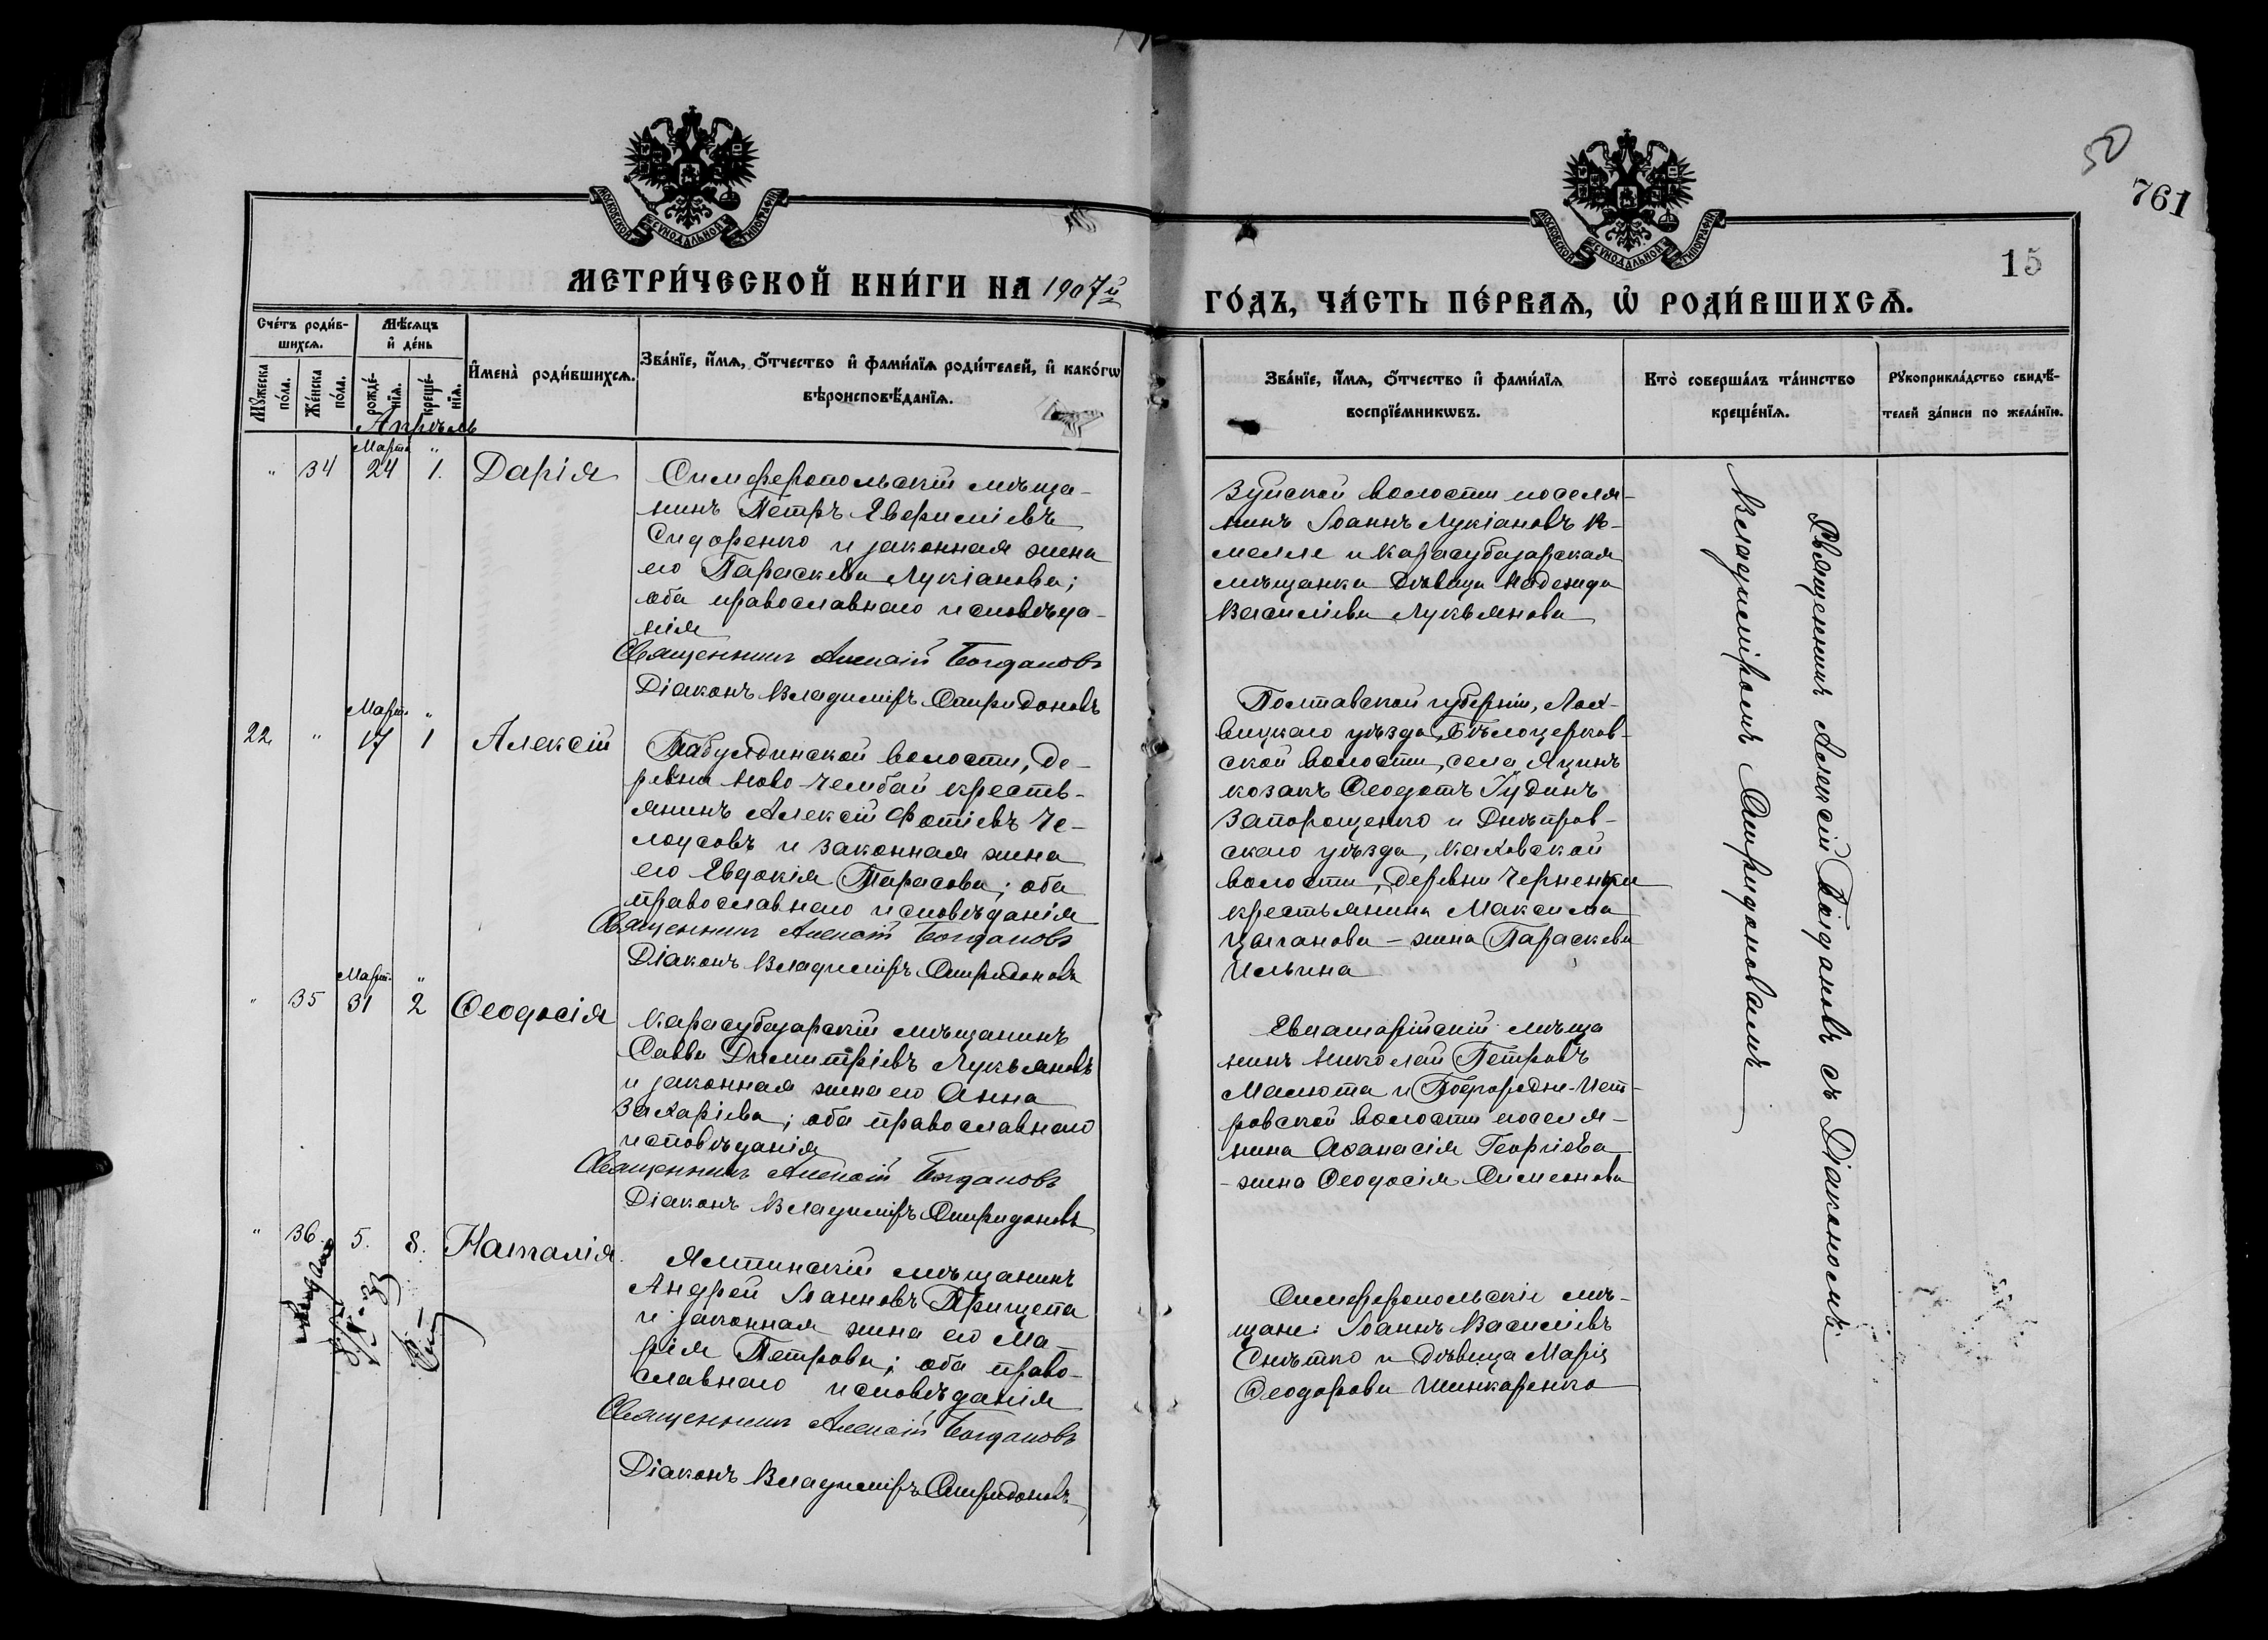 50
761
15
МОСКОВСКОЙ СѴНОДАЛЬНОЙ ТИПОГРАФІИ
МОСКОВСКОЙ СѴНОДАЛЬНОЙ ТИПОГРАФІИ
МЕТРИ́ЧЕСКОЙ КНИ́ГИ НА 1907й
ГО́ДЪ, ЧА́СТЬ ПЕ́РВАѦ, Ѡ҆ РОДИ́ВШИХСѦ.
Сче́тъ роди́в-
шихсѧ.
Мѣ́сѧцъ
и҆ де́нь
Мꙋ́жеска
по́ла.
Же́нска
по́ла.
рожде́-
нїѧ.
креще́-
нїѧ.
И҆мена̀ роди́вшихсѧ.
Зва́нїе, и҆́мѧ, ѻ҆́тчество и҆ фами́лїѧ роди́телей, и҆ како́гѡ
вѣроисповѣ́данїѧ.
Зва́нїе, и҆́мѧ, ѻ҆́тчество и҆ фами́лїѧ
воспрїе́мникѡвъ.
Кто̀ соверша́лъ та́инство
креще́нїѧ.
Рꙋкоприкла́дство свидѣ́-
телей за́писи по жела́нїю.
Апрѣль
Март. "
" 34 24 1. Дарія
Симферопольскій мѣща-
нинъ Петръ Евфиміевъ
Сидоренко и законная жена
его Параскева Лукіанова;
оба православнаго исповѣда-
нія
Священникъ Алексій Богдановъ
Діаконъ Владиміръ Спиридоновъ
Зуйской волости поселя-
нинъ Іоаннъ Лукіановъ
и Карасубазарская
мѣщанка дѣвица Надежда
Василіева Лукьянова
Март. "
22 " 17 1 Алексій
Табулдинской волости, де-
ревни Ново-Чембай кресть-
янинъ Алексій Фотіевъ Че-
лоусовъ и законная жена
его Евдокія Тарасова; оба
православнаго исповѣданія
Священникъ Алексій Богдановъ
Діаконъ Владиміръ Спиридоновъ
Полтавской губерніи, Лох-
вицкаго уѣзда, Бѣлоцерков-
ской волости, села Яцинъ
козакъ Ѳеодотъ Іудинъ
Запорощенко и Днѣпров-
скаго уѣзда, Каховской
волости, деревни Черненьки
крестьянина Максима
Цыганова – жена Параскева
Ильина
Март. "
" 35 31 2 Ѳеодосія
Карасубазарскій мѣщанинъ
Савва Димитріевъ Лукьяновъ
и законная жена его Анна
Захаріева; оба православнаго
исповѣданія
Священникъ Алексій Богдановъ
Діаконъ Владиміръ Спиридоновъ
Евпаторійскій мѣща
нинъ Николай Петровъ
Малюта и Подгородне-Пет-
ровской волости поселя-
нина Аѳанасія Георгіева
- жена Ѳеодосія Симеонова
" 36. 5. 8. Наталія.
Ялтинскій мѣщанинъ
Андрей Іоанновъ Прищепа
и законная жена его Ма-
рія Петрова; оба право-
славнаго исповѣданія
Священникъ Алексій Богдановъ
Діаконъ Владиміръ Спиридоновъ
Симферопольскіе мѣ-
щане: Іоаннъ Василіевъ
Снѣтко и дѣвица Марія
Ѳеодорова Шинкаренко
Священникъ Алексій Богдановъ съ Діакономъ
Владиміромъ Спиридоновымъ